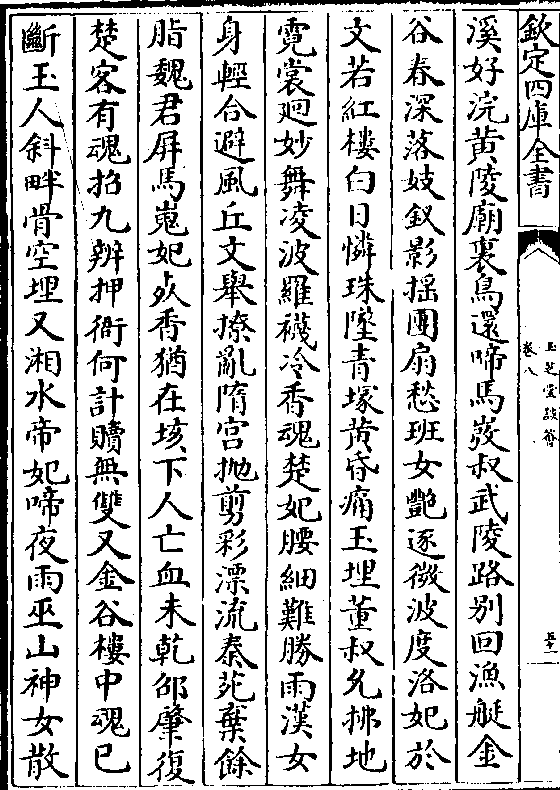 欽定四庫全書
玉芝堂談薈
卷八
溪好浣黄陵廟裏鳥還啼馬嵗叔武陵路别回漁艇金
谷春深落妓釵影揺團扇愁班女艷逐微波度洛妃於
文若紅樓白日憐珠墜青塚黄昏痛玉埋董叔允拂地
霓裳廻妙舞凌波羅襪冷香魂楚妃腰細難勝雨漢女
身輕合避風丘文舉撩亂隋宫抛剪彩漂流秦苑棄餘
脂魏君屏馬嵬妃㱙香猶在垓下人亡血未乾邵肇復
楚客有魂招九辨押衙何計贖無雙又金谷樓中魂已
斷玉人斜畔骨空埋又湘水帝妃啼夜雨巫山神女散